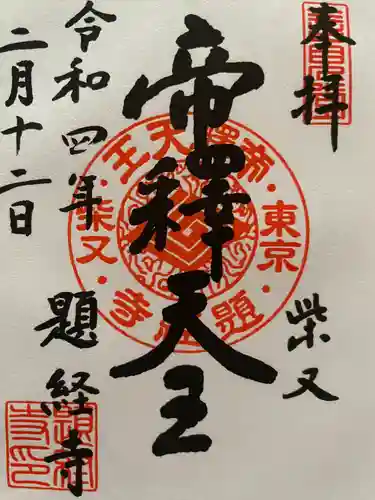 奉拝
柴又
帝釋天王
令和四年
二月十二日
題経寺
東京
柴又
帝釋天王
題経寺